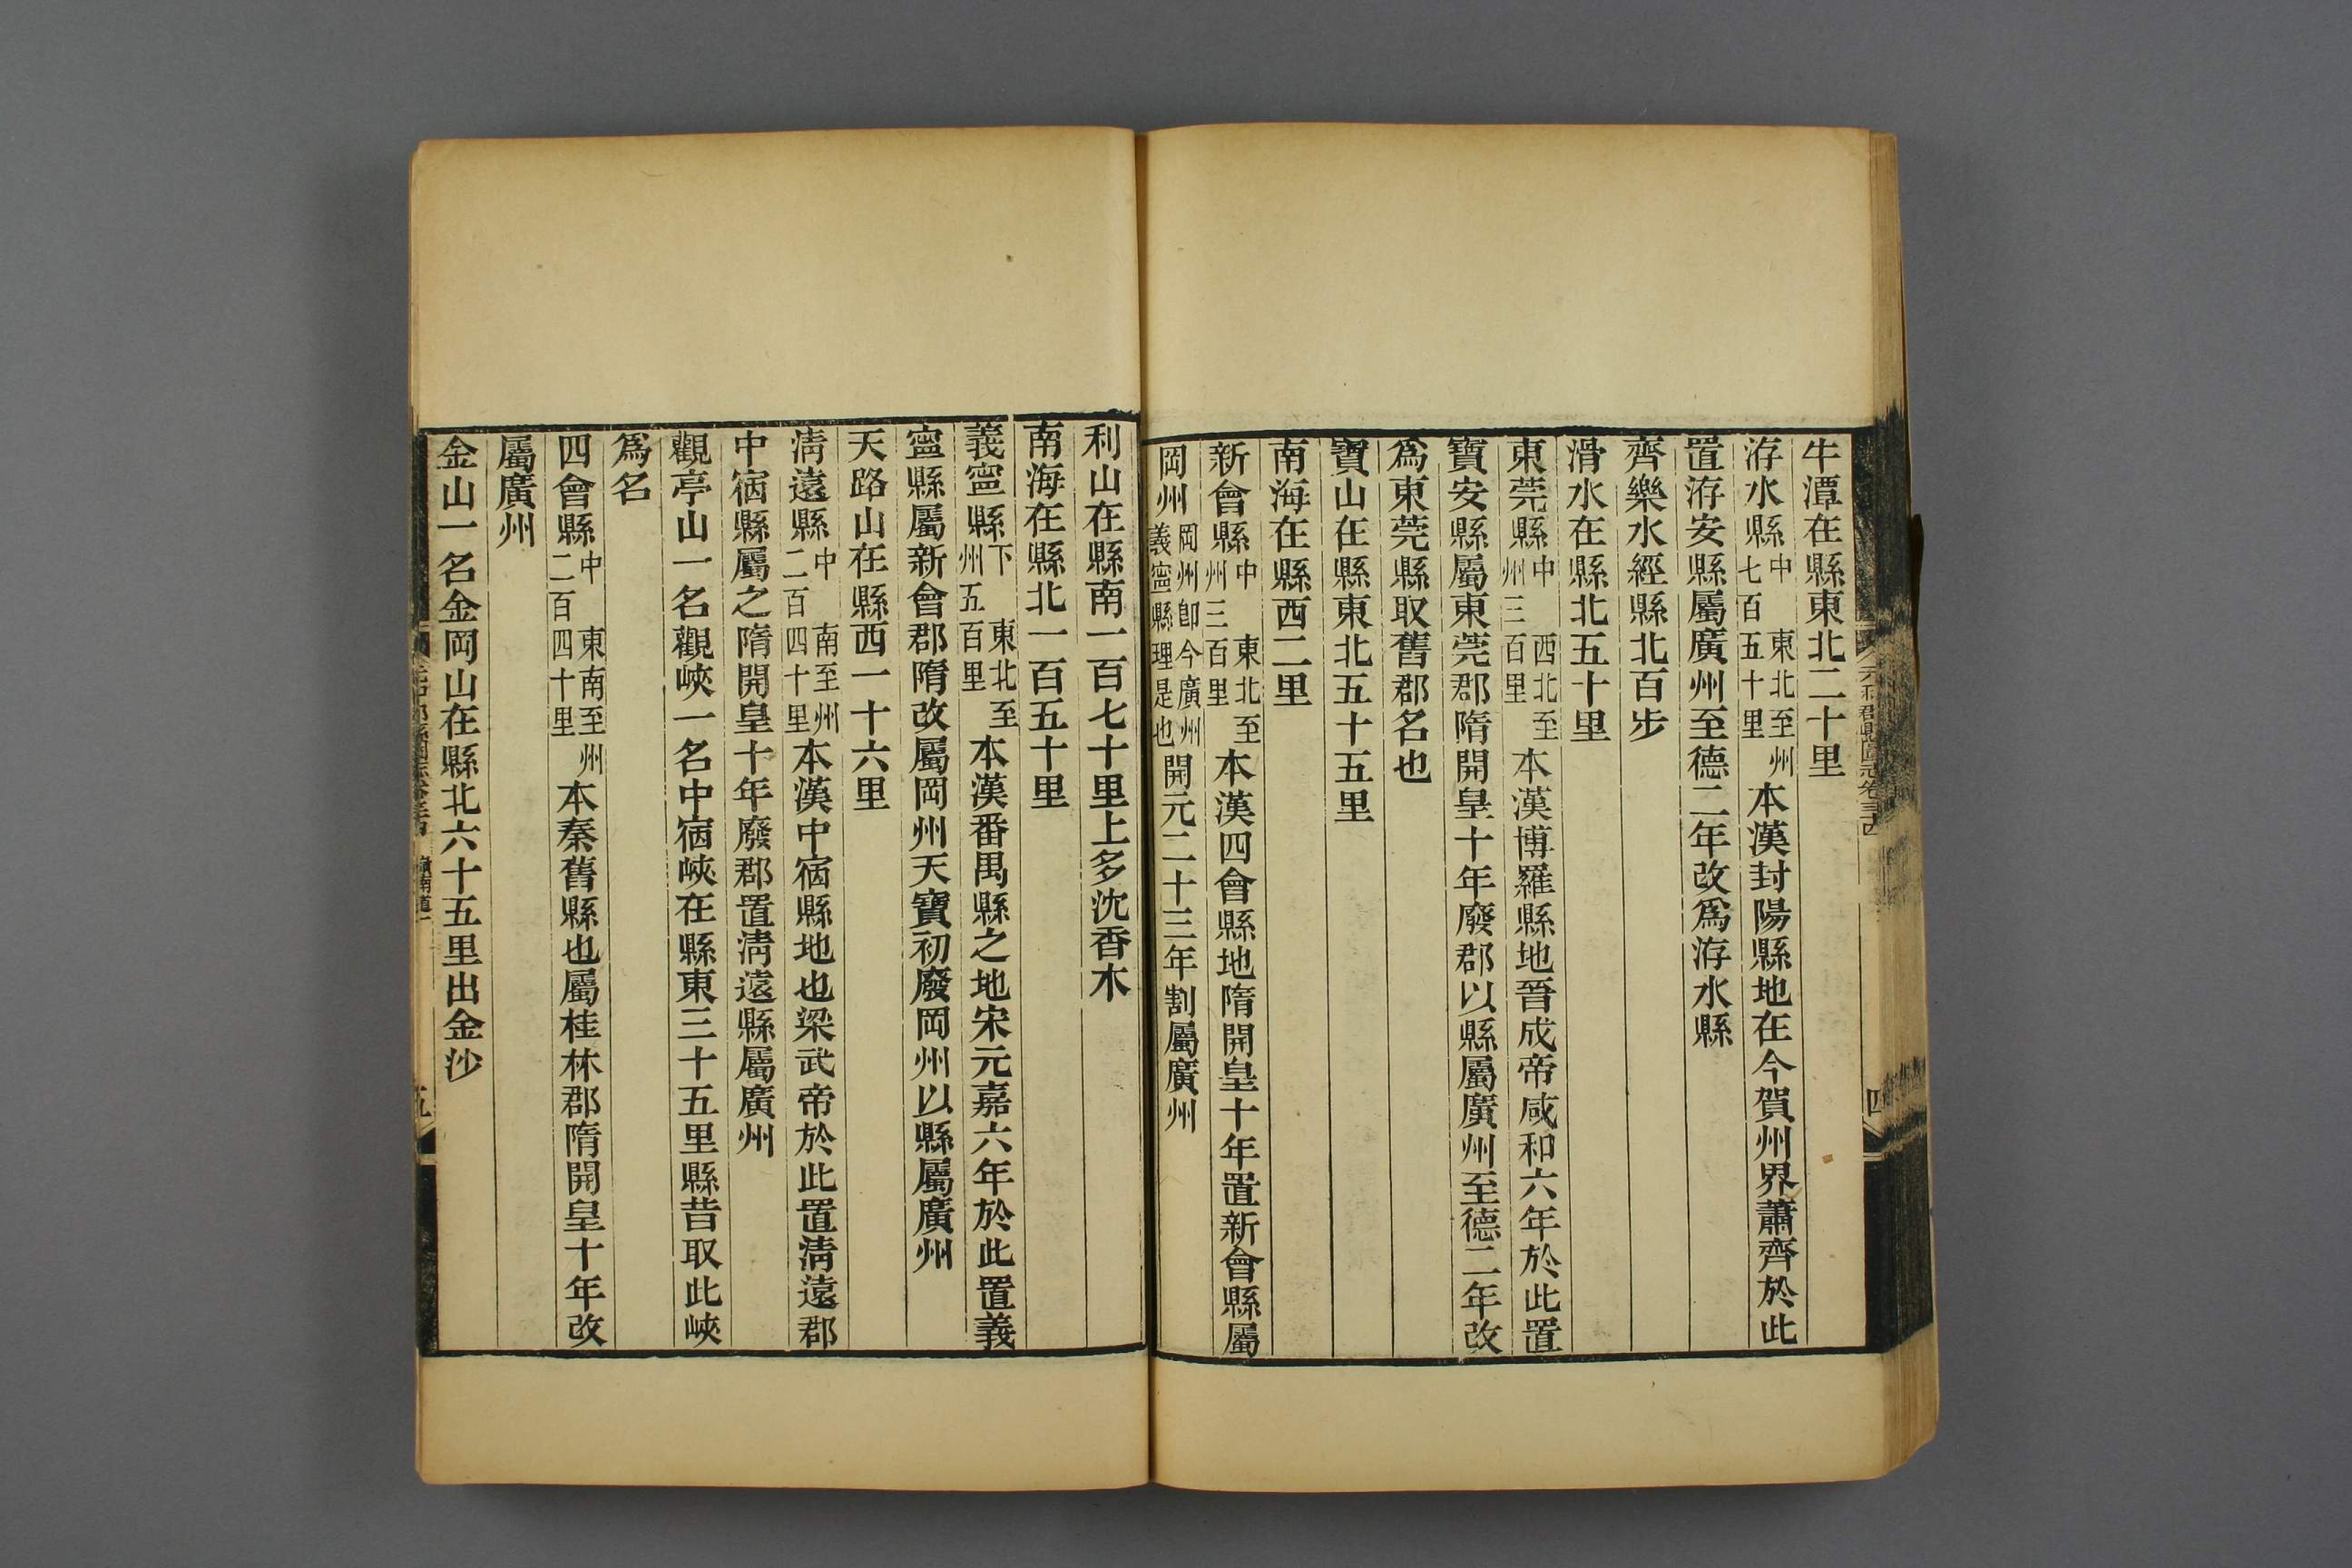 牛潭在縣東北二十里
洊水縣中 東北至州七百五十里本漢封陽縣地在今賀州界蕭齊於此
置洊安縣屬廣州至德二年改爲洊水縣
齊樂水經縣北百步
滑水在縣北五十里
東莞縣中 西北至州三百里本漢博羅縣地晉成帝咸和六年於此置
寶安縣屬東莞郡隋開皇十年廢郡以縣屬廣州至德二年改
爲東莞縣取舊郡名也
寶山在縣東北五十五里
南海在縣西二里
新會縣中 東北至州三百里本漢四會縣地隋開皇十年置新會縣屬
岡州岡州卽今廣州義寧縣理是也開元二十三年割屬廣州
利山在縣南一百七十里上多沈香木
南海在縣北一百五十里
義寧縣下 東北至州五百里本漢番禺縣之地宋元嘉六年於此置義
寧縣屬新會郡隋改屬岡州天寶初廢岡州以縣屬廣州
天路山在縣西一十六里
淸遠縣中 南至州二百四十里本漢中宿縣地也梁武帝於此置淸遠郡
中宿縣屬之隋開皇十年廢郡置淸遠縣屬廣州
觀亭山一名觀峽一名中宿峽在縣東三十五里縣昔取此峽
爲名
四會縣中 東南至州二百四十里本秦舊縣也屬桂林郡隋開皇十年改
屬廣州
金山一名金岡山在縣北六十五里出金沙
元和郡縣圖志卷三十四
四